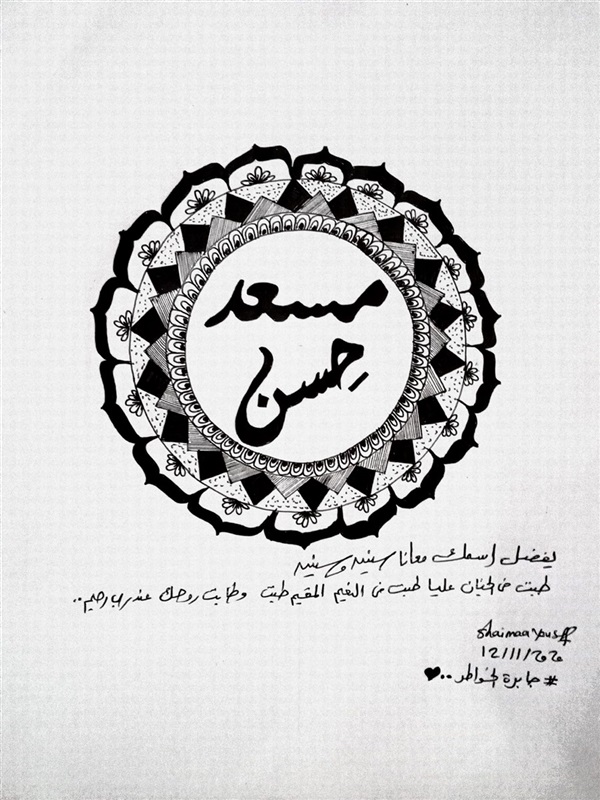 مسعد
حسن
يفضل اسمك معانا سنين وسنين
طبت في الجنان عليا طبت في النعيم المقيم طبت وطابت روحك عند رب رحيم..
Shaimaa Yousef
12/11/2020
# جابرة الخواطر..♥